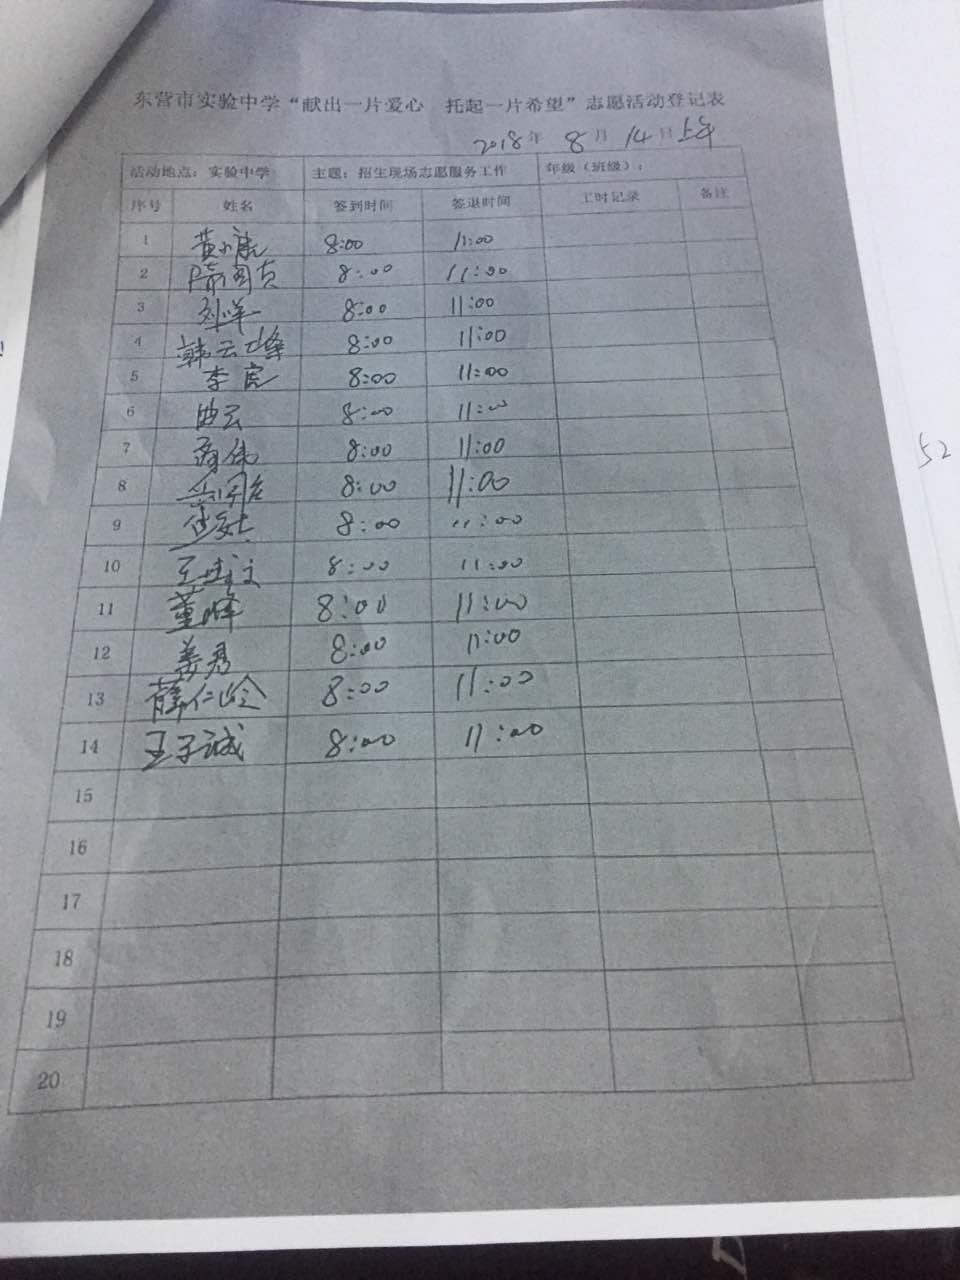 东营市实验中学“献出一片爱心 托起一片希望”志愿活动登记表
2018年 8月 14日上午
活动地点：实验中学 主题：招生现场志愿服务工作 年级（班级）：
序号 姓名 签到时间 签退时间 工时记录 备注
1 黄小 8:00 11:00
2 8:00 11:00
3 刘洋 8:00 11:00
4 韩云峰 8:00 11:00
5 李 8:00 11:00
6 曲云 8:00 11:00
7 伟 8:00 11:00
8 8:00 11:00
9 8:00 11:00
10 王 8:00 11:00
11 董峰 8:00 11:00
12 姜秀 8:00 11:00
13 薛仁岭 8:00 11:00
14 王子诚 8:00 11:00
15
16
17
18
19
20
52